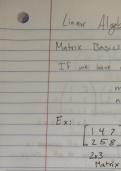 Linear Alge
Matrix Basics
If we have
m
n
Ex:
1 4 7
2 5 8
2x3
Matrix